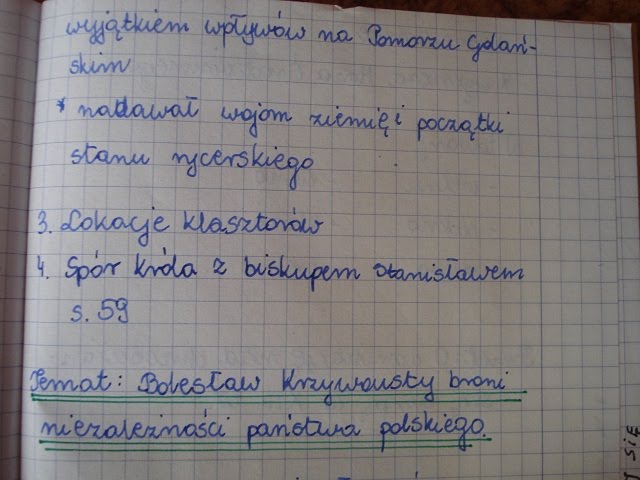 wyjątkiem wpływów na Pomorzu Gdań-
skim
* nadawał wojom ziemię i początki
stanu rycerskiego
3. Lokacje klasztorów
4. Spór króla z biskupem Stanisławem
s. 59
Temat: Bolesław Krzywousty broni
niezależności państwa polskiego.
się